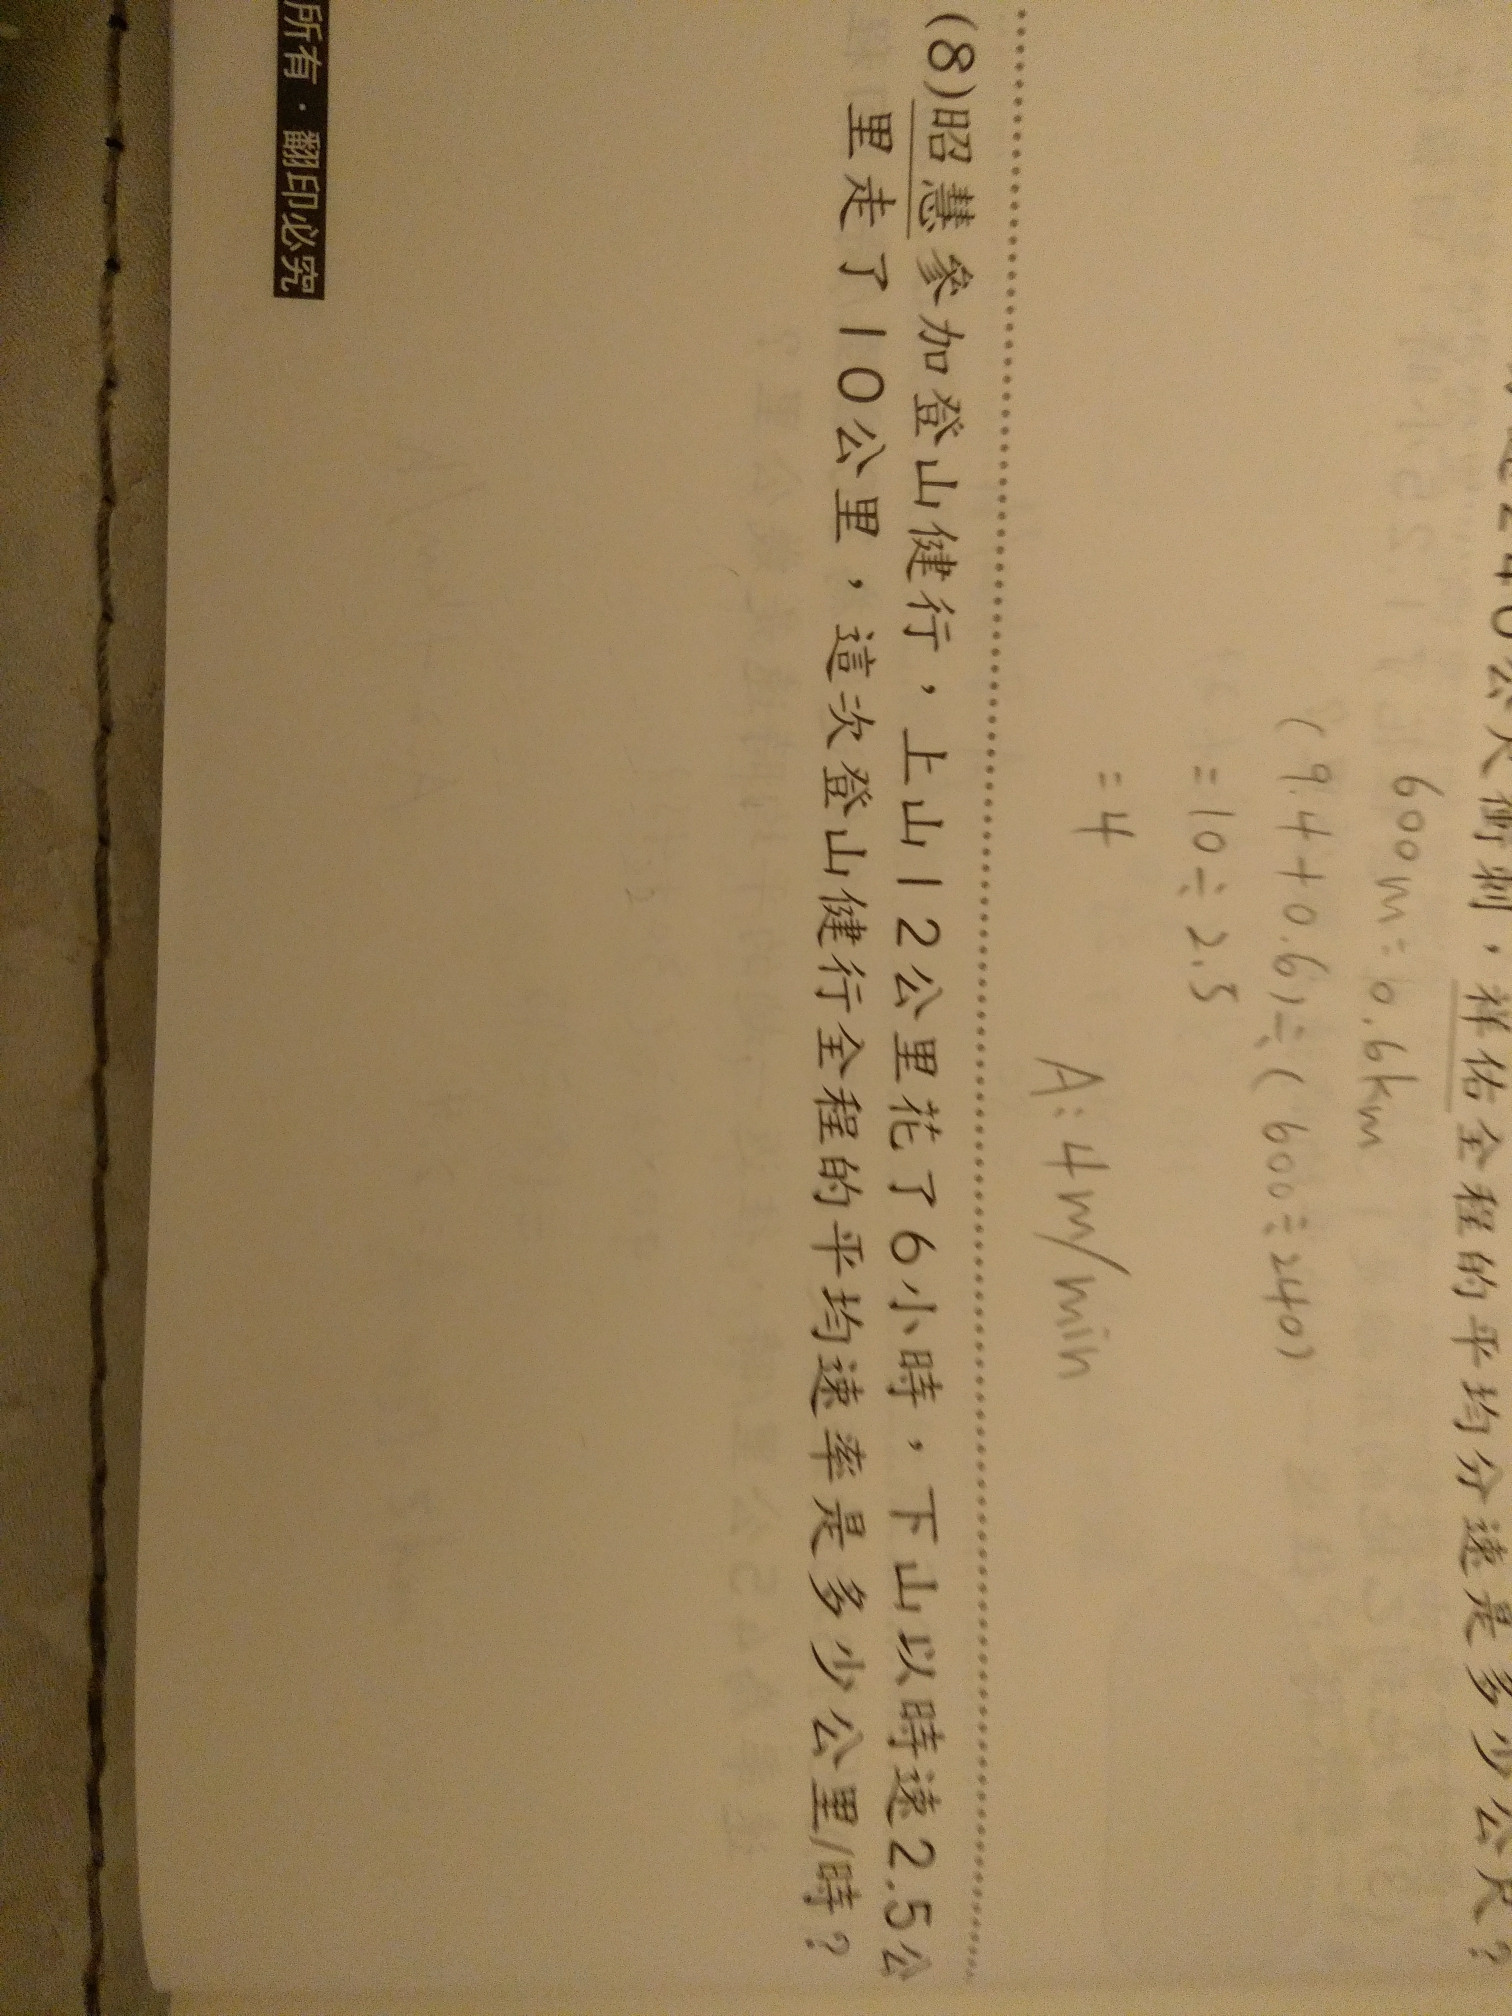 240公尺衝刺，祥佑全程的平均分速是多少公尺？
600m=0.6km
(9.4+0.6)÷(600÷240)
=10÷2.5
=4
A:4m/min
(8)昭慧參加登山健行，上山12公里花了6小時，下山以時速2.5公
里走了10公里，這次登山健行全程的平均速率是多少公里/時？
所有·翻印必究